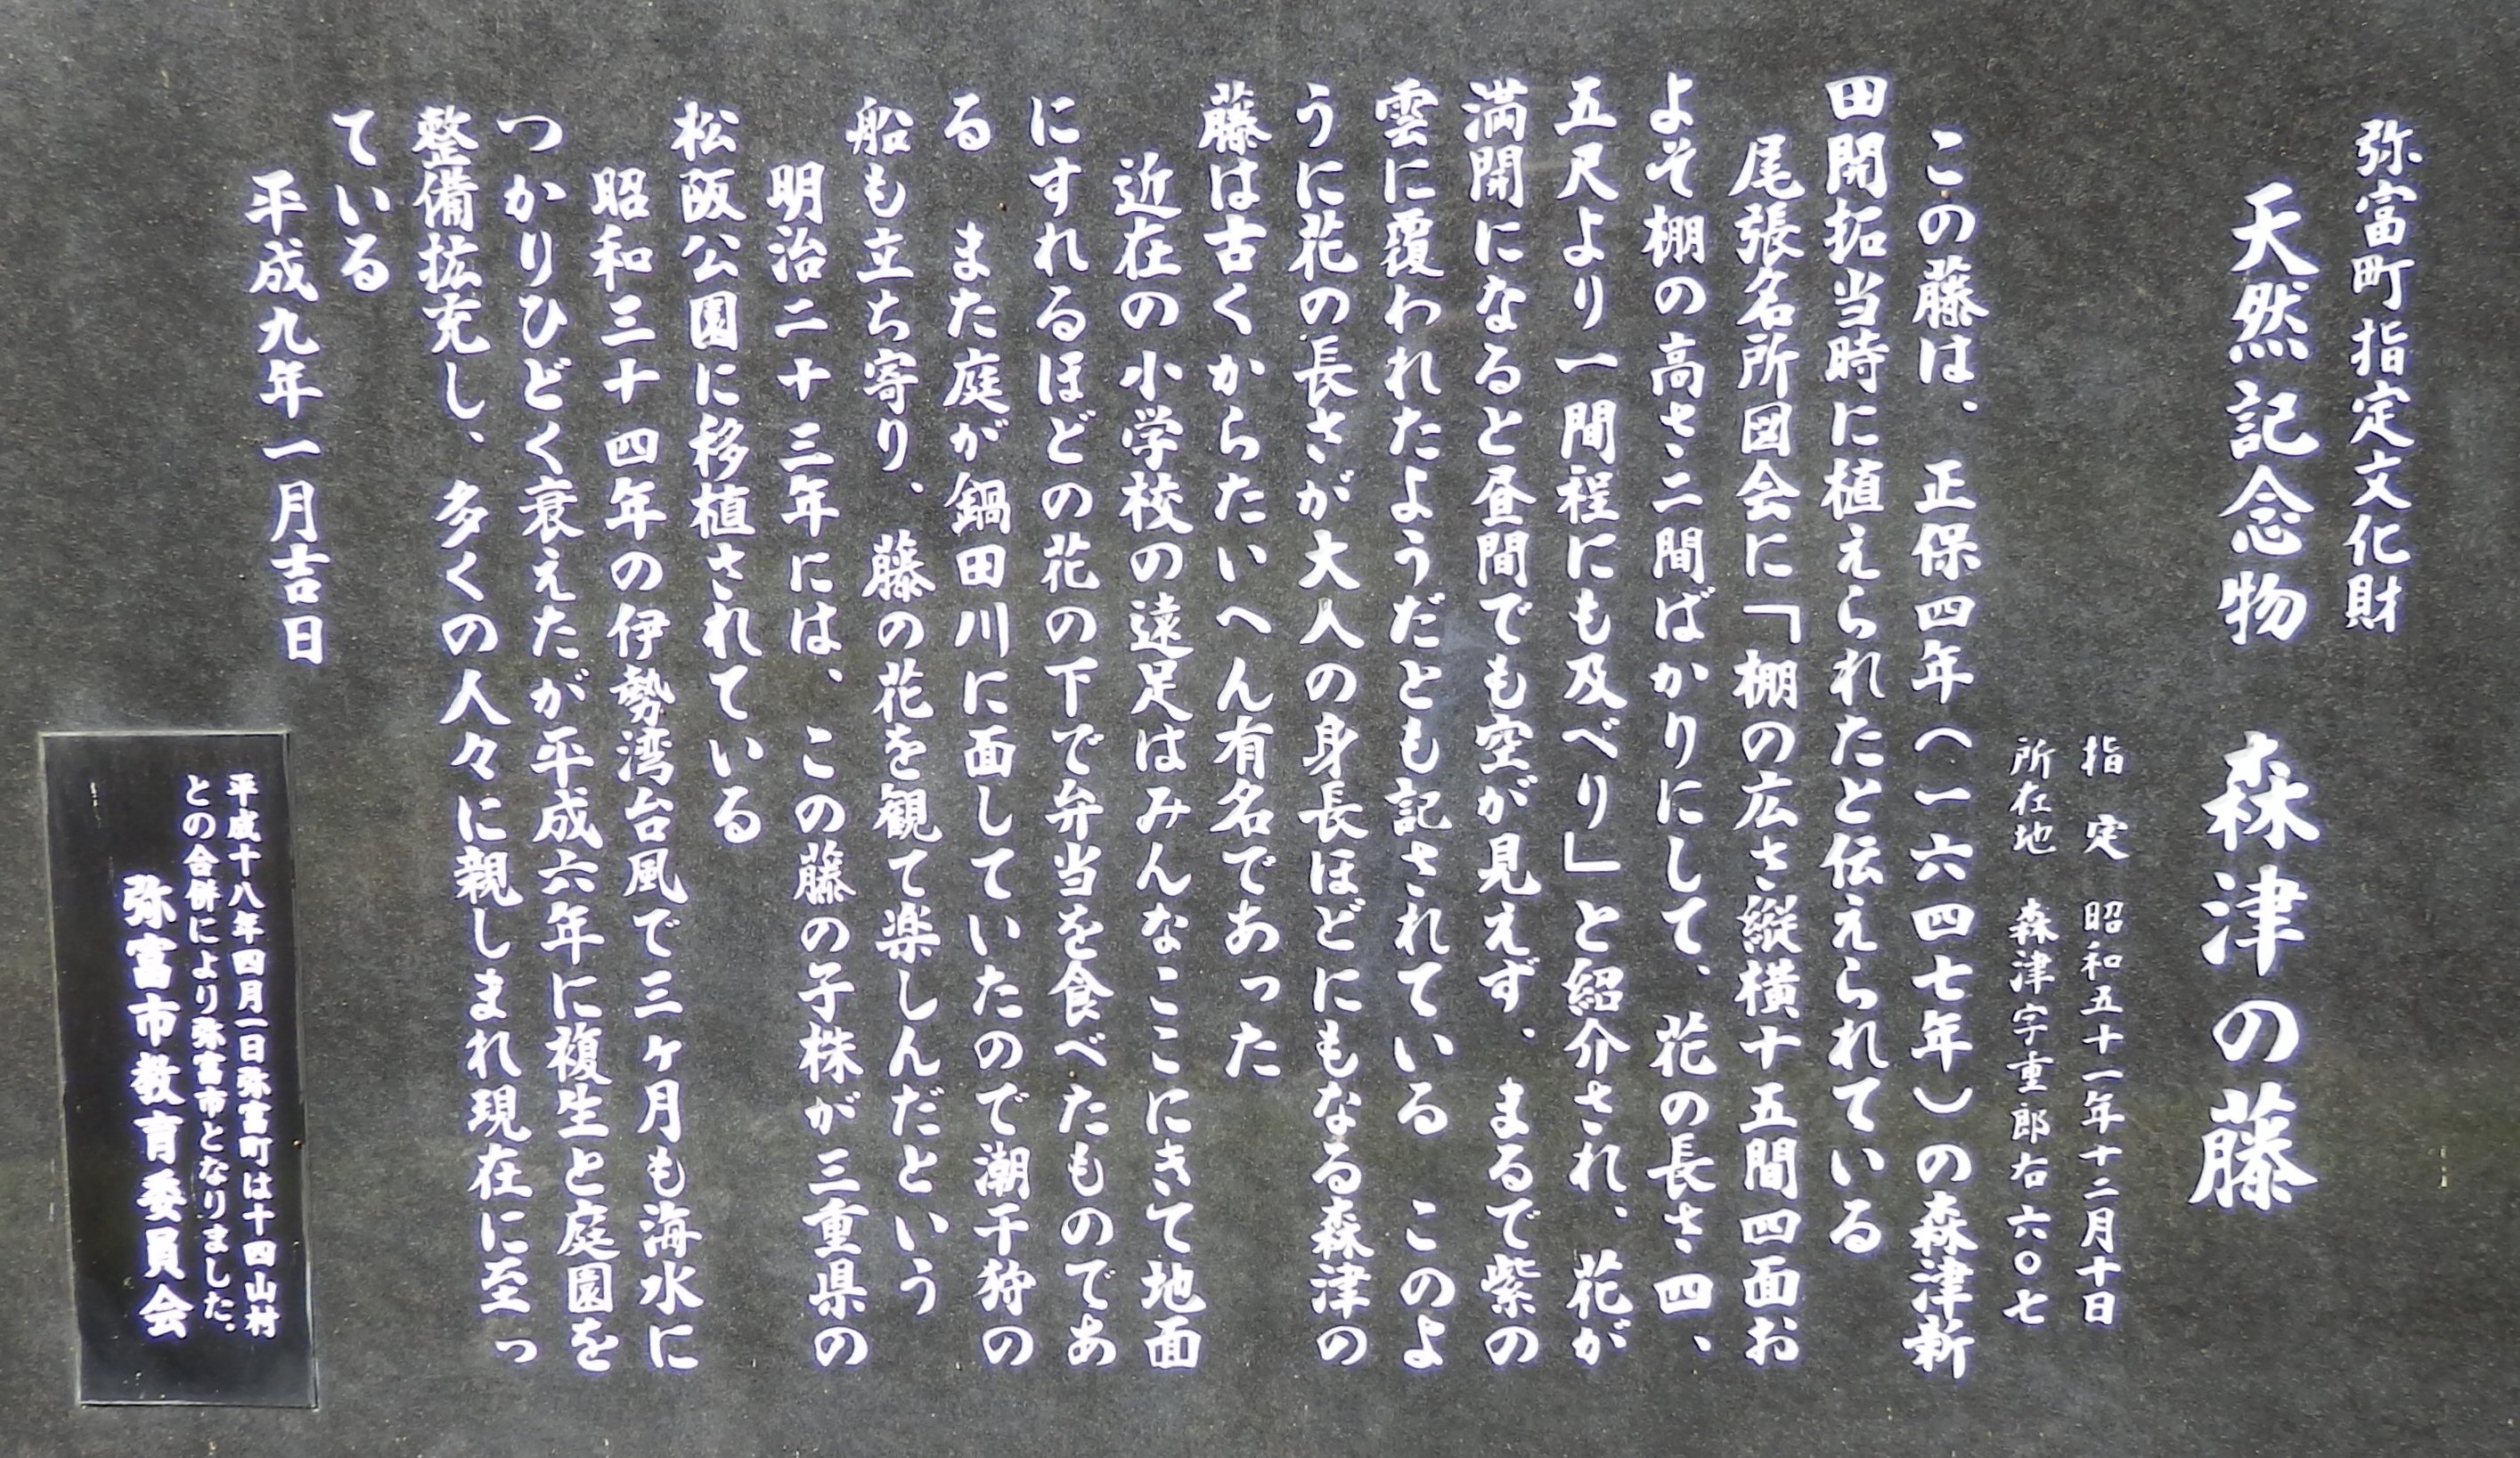 弥富町指定文化財
天然記念物　森津の藤
指　定　昭和五十一年十二月十日
所在地　森津字重郎右六〇七
このの藤は、正保四年（一六四七年）の森津新
田開拓当時に植えられたと伝えられている
尾張名所図会に「棚の広さ縦横十五間四面お
よそ棚の高さ二間ばかりにして、花の長さ四、
五尺より一間程にも及べり」と紹介され、花が
満開になると昼間でも空が見えず、まるで紫の
雲に覆われたようだとも記されている　このよ
うに花の長さが大人の身長ほどにもなる森津の
藤は古くからたいへん有名であった
近在の小学校の遠足はみんなここにきて地面
にすれるほどの花の下で弁当を食べたものであ
る　また庭が鍋田川に面していたので潮干狩の
船も立ち寄り、藤の花を観て楽しんだという
明治二十三年には、この藤の子株が三重県の
松阪公園に移植されている
昭和三十四年の伊勢湾台風で三ヶ月も海水に
つかりひどく衰えたが平成六年に複生と庭園を
整備拡充し、多くの人々に親しまれ現在に至っ
ている
平成九年一月吉日
平成十八年四月一日弥富町は十四山村
との合併により弥富市となりました。
弥富市教育委員会